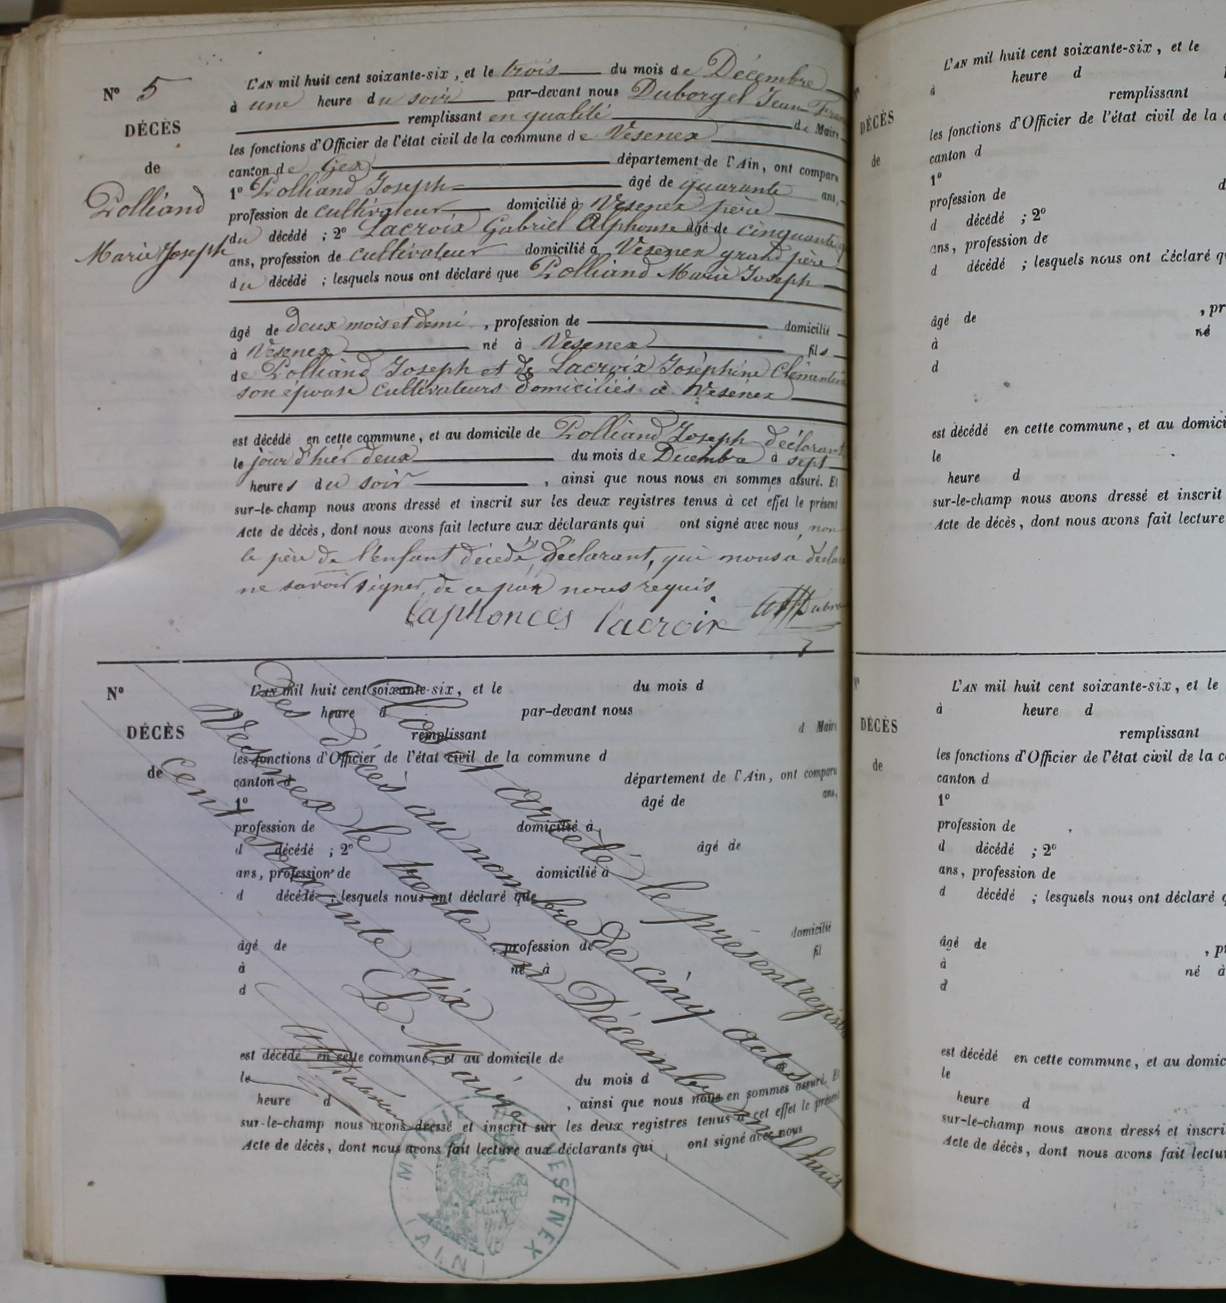 N° 5
DÉCÈS
de
Rolliand
Marie Joseph
L'AN mil huit cent soixante-six, et le trois du mois de Décembre
à une heure du soir par-devant nous Duborgel Jean
remplissant en qualité de Maire
les fonctions d'Officier de l'état civil de la commune de Vesenex
canton de Gex département de l'Ain, ont comparu
1° Rolliand Joseph âgé de quarante ans,
profession de cultivateur domicilié à Vesenex père
du décédé ; 2° Lacroix Gabriel Alphonse âgé de cinquante
ans, profession de cultivateur domicilié à Vesenex grand père
du décédé ; lesquels nous ont déclaré que Rolliand Marie Joseph
âgé de deux mois et demi, profession de domicilié
à Vesenex né à Vesenex fils
de Rolliand Joseph et de Lacroix Joséphine Clémentine
son épouse cultivateurs domiciliés à Vesenex
est décédé en cette commune, et au domicile de Rolliand Joseph déclarant
le jour d'hier deux du mois de Décembre à sept
heures du soir, ainsi que nous nous en sommes assuré. Et
sur-le-champ nous avons dressé et inscrit sur les deux registres tenus à cet effet le présent
Acte de décès, dont nous avons fait lecture aux déclarants qui ont signé avec nous, non
le père de l'enfant décédé, déclarant, qui nous a déclaré
ne savoir signer de ce par nous requis
laphonces lacroix
N°
DÉCÈS
de
L'AN mil huit cent soixante-six, et le du mois d
à heure d par-devant nous
remplissant d Maire
les fonctions d'Officier de l'état civil de la commune d
canton d département de l'Ain, ont comparu
1° âgé de ans,
profession de domicilié à
d décédé ; 2° âgé de
ans, profession de domicilié à
d décédé ; lesquels nous ont déclaré que
âgé de , profession de domicilié
à né à fil
d
est décédé en cette commune, et au domicile de
le du mois d
heure d , ainsi que nous nous en sommes assuré. Et
sur-le-champ nous avons dressé et inscrit sur les deux registres tenus à cet effet le présent
Acte de décès, dont nous avons fait lecture aux déclarants qui ont signé avec nous
Clos et arrêté le présent registre
des décès au nombre de cinq actes
Vesenex le trente un Décembre mil huit
cent soixante six
Le Maire
MAIRIE VESENEX
(AIN)
DÉCÈS
de
L'AN mil huit cent soixante-six, et le
à heure d
remplissant
les fonctions d'Officier de l'état civil de la
canton d
1°
profession de
d décédé ; 2°
ans, profession de
d décédé ; lesquels nous ont déclaré
âgé de
à né
d
est décédé en cette commune, et au
le
heure d
sur-le-champ nous avons dressé et inscrit
Acte de décès, dont nous avons fait lecture
DÉCÈS
de
L'AN mil huit cent soixante-six, et le
à heure d
remplissant
les fonctions d'Officier de l'état civil de la
canton d
1°
profession de
d décédé ; 2°
ans, profession de
d décédé ; lesquels nous ont déclaré
âgé de
à né à
d
est décédé en cette commune, et au
le
heure d
sur-le-champ nous avons dressé et
Acte de décès, dont nous avons fait